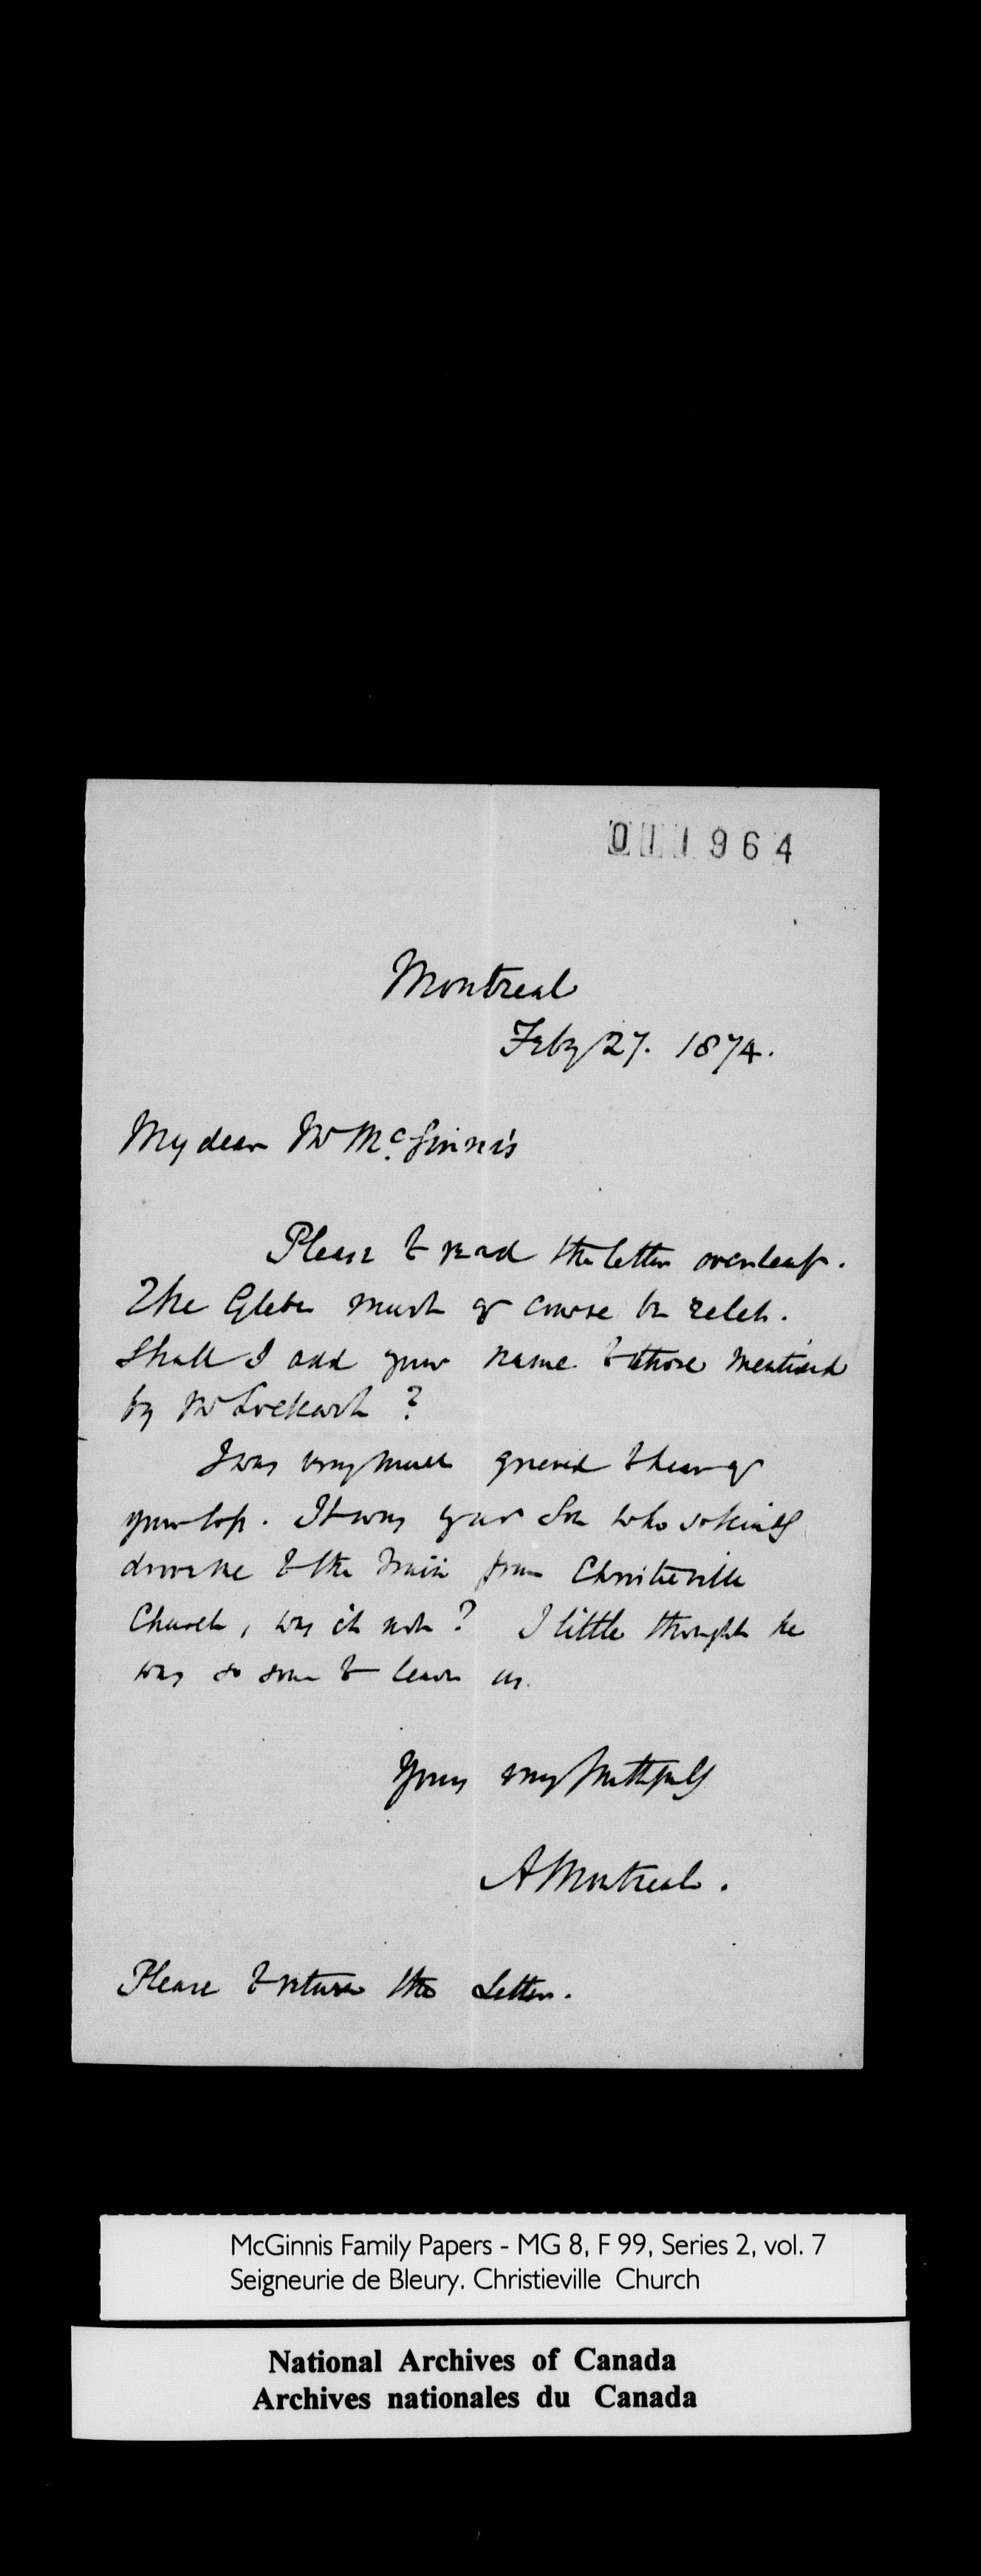 011964
Montreal
Feby 27. 1874.
My dear Mr McGinnis
Please to read the letter overleaf.
The Glebe must of course be relet.
Shall I add your name to those mentioned
by Mr Lockhart ?
I was very much grieved to hear of
your loss. It was your Son who so kindly
drove me to the train from Christieville
Church, was it not ? I little thought he
was so soon to leave us.
Yours very faithfully
A Montreal.
Please to return the Letter.
McGinnis Family Papers - MG 8, F 99, Series 2, vol. 7
Seigneurie de Bleury. Christieville Church
National Archives of Canada
Archives nationales du Canada